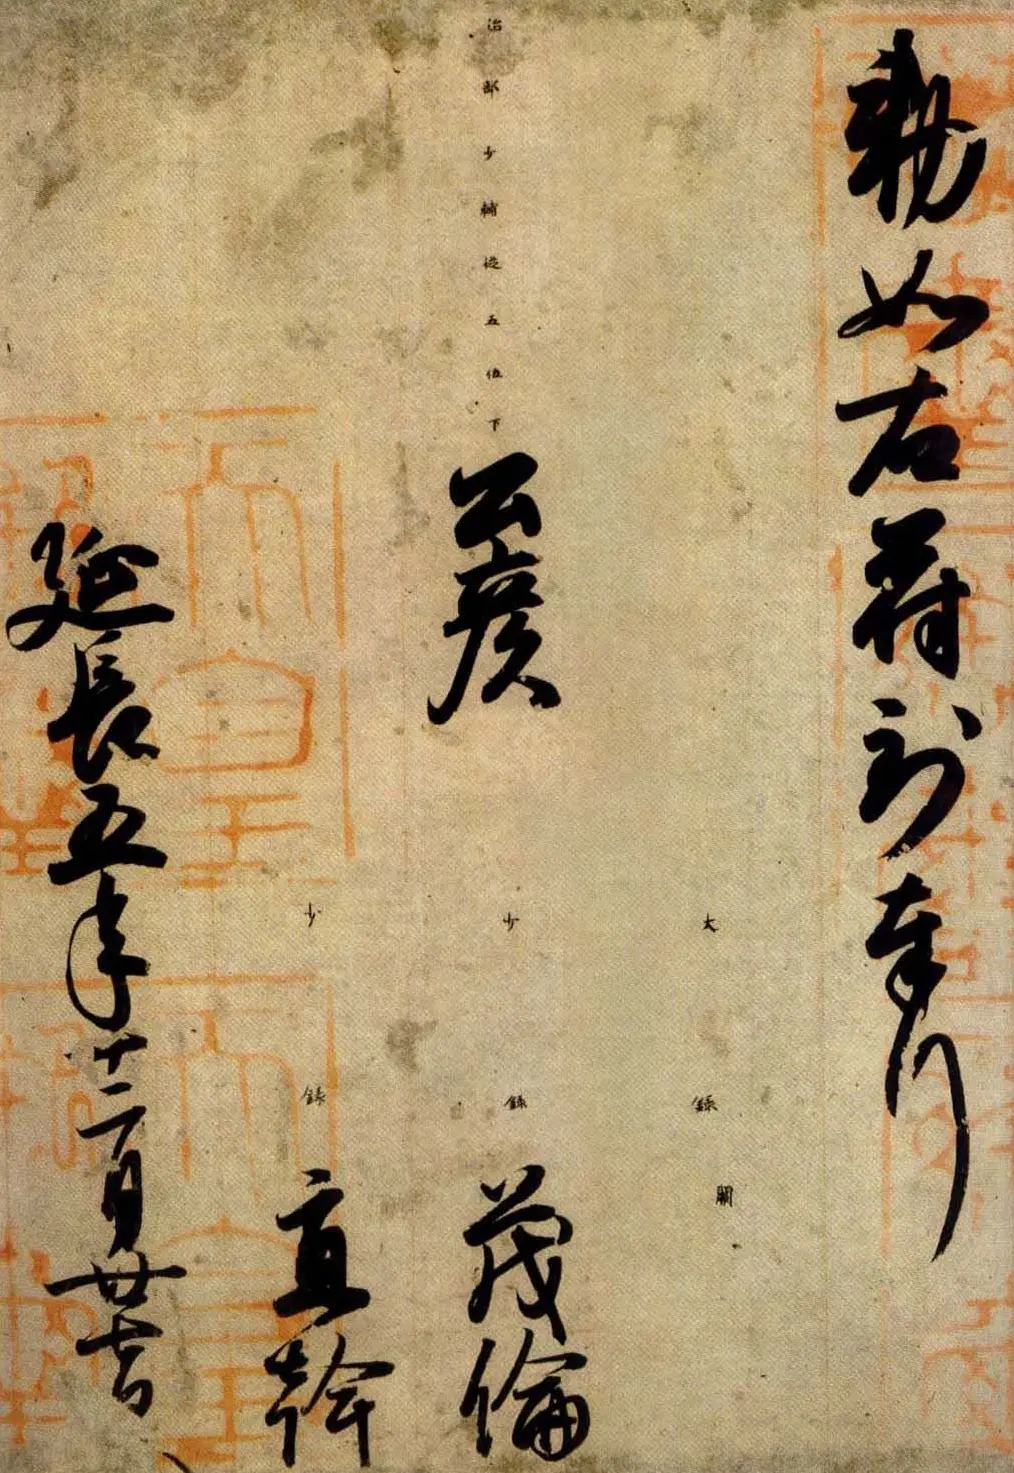 勅如右符到奉行
大録 闕
治部少輔従五位下 公彦
少録 茂倫
少録 直幹
延長五年十二月廿七日
天皇